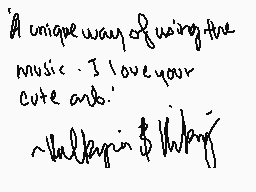 A unique way of using the
music. I love your
cute art.